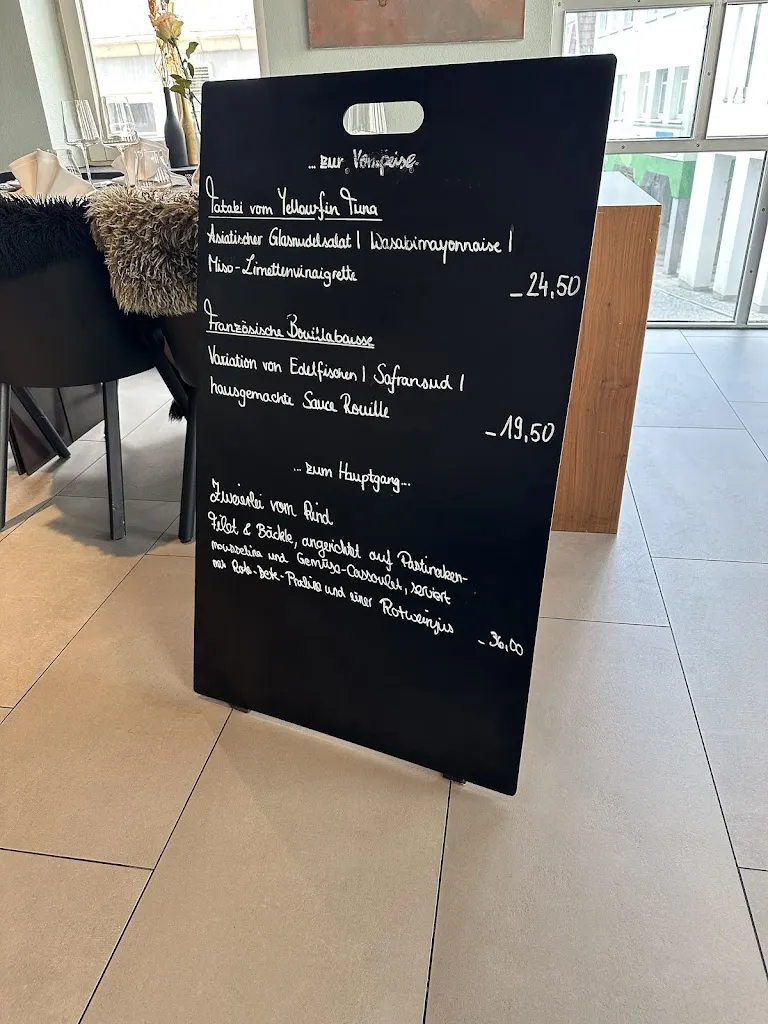 ... zur Vorspeise
Tataki vom Yellowfin Tuna
Asiatischer Glasnudelsalat | Wasabimayonnaise |
Miso-Limettenvinaigrette
- 24,50
Französische Bouillabaisse
Variation von Edelfischen | Safransud |
hausgemachte Sauce Rouille
- 19,50
... zum Hauptgang...
Zweierlei vom Rind
Filet & Bäckle, angerichtet auf Pastinaken-
mousselina und Gemüse-Cassoulet, serviert
mit Rote-Bete-Praline und einer Rotweinjus
- 36,00